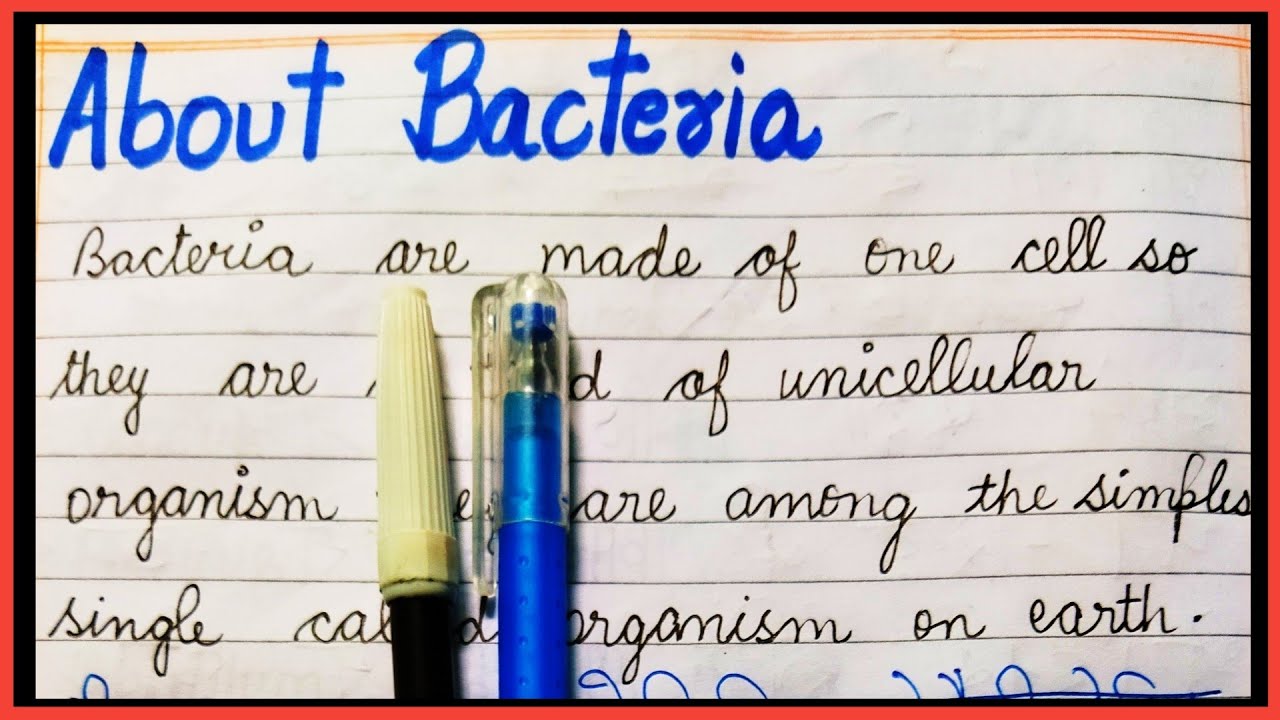 About Bacteria
Bacteria are made of one cell so
they are of unicellular
organism are among the simples
single organism on earth.